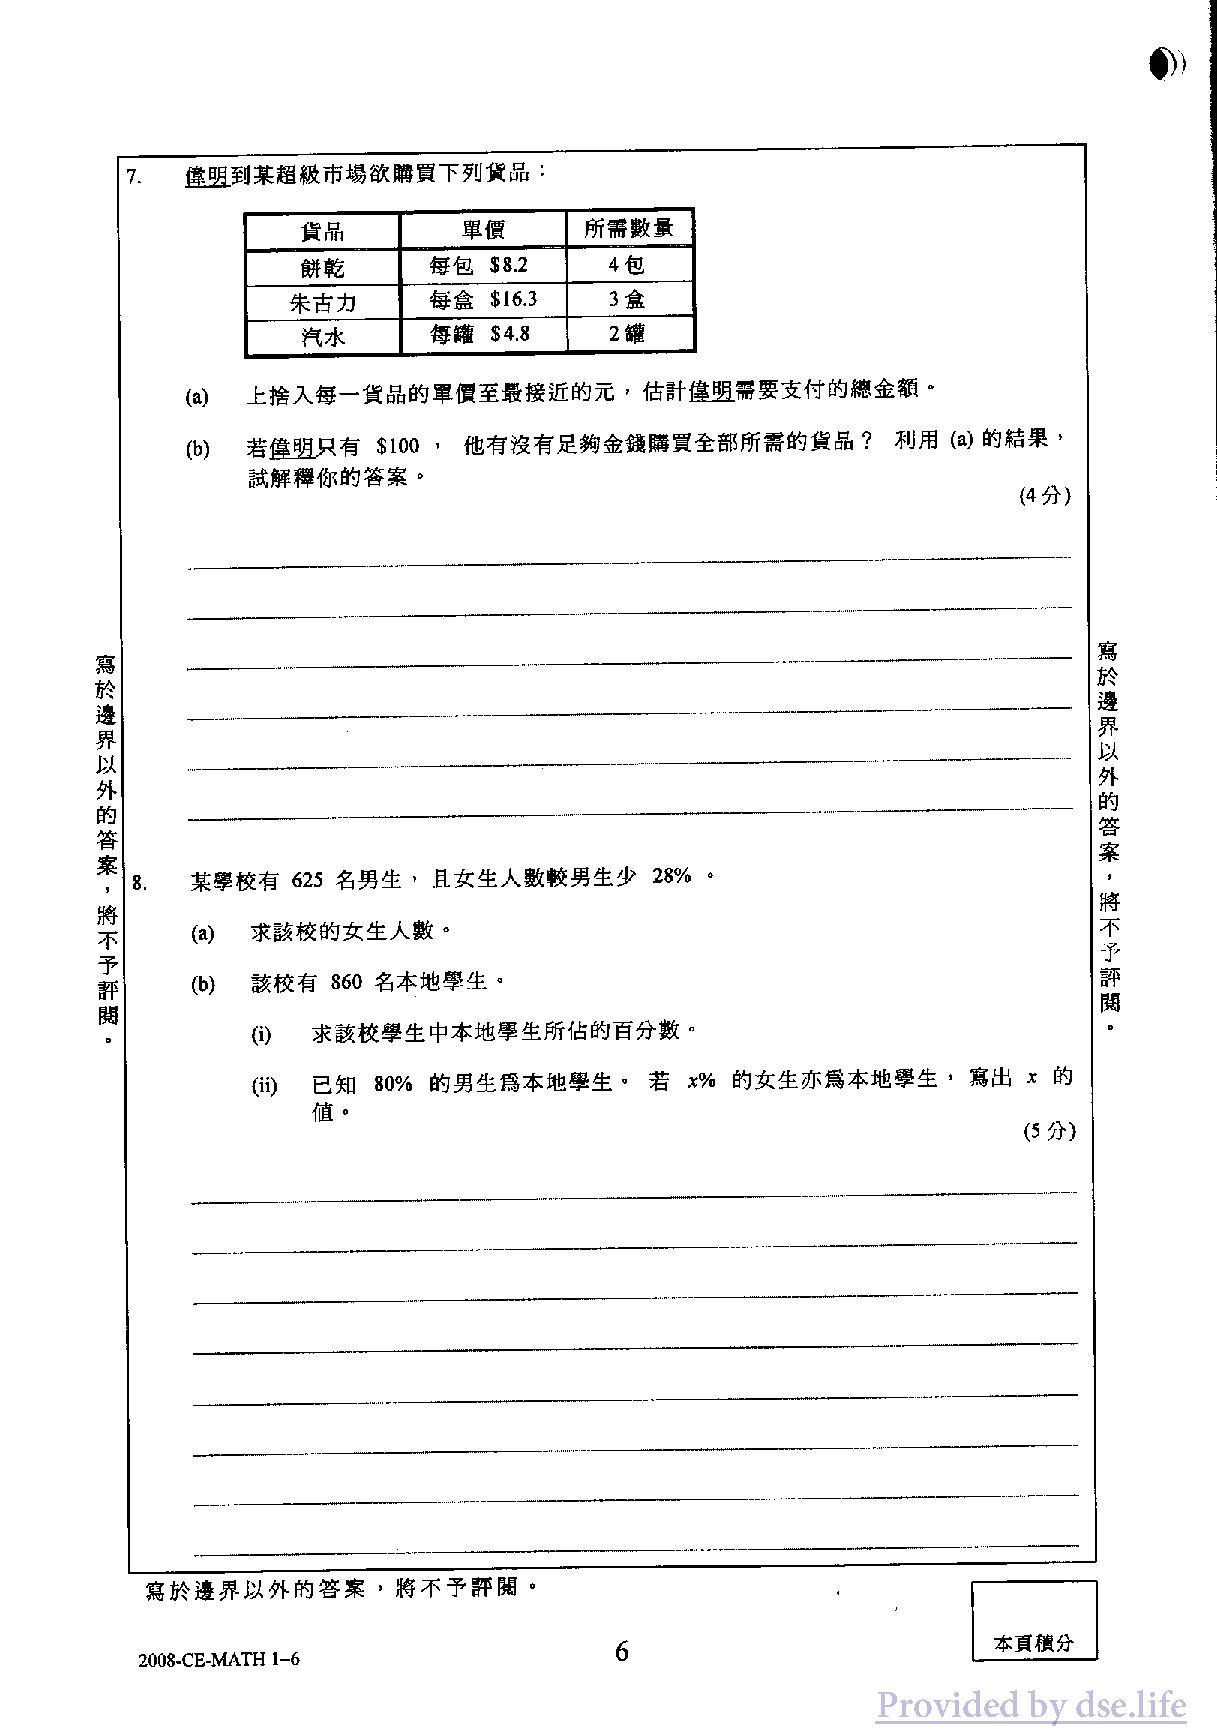 7. 偉明到某超級市場欲購買下列貨品：
貨品 單價 所需數量
餅乾 每包 $8.2 4包
朱古力 每盒 $16.3 3盒
汽水 每罐 $4.8 2罐
(a) 上捨入每一貨品的單價至最接近的元，估計偉明需要支付的總金額。
(b) 若偉明只有 $100 ， 他有沒有足夠金錢購買全部所需的貨品？ 利用 (a) 的結果，
試解釋你的答案。
(4分)
8. 某學校有 625 名男生，且女生人數較男生少 28% 。
(a) 求該校的女生人數。
(b) 該校有 860 名本地學生。
(i) 求該校學生中本地學生所佔的百分數。
(ii) 已知 80% 的男生爲本地學生。 若 x% 的女生亦爲本地學生， 寫出 x 的
值。
(5分)
寫於邊界以外的答案，將不予評閱。
寫於邊界以外的答案，將不予評閱。
寫於邊界以外的答案，將不予評閱。
本頁積分
2008-CE-MATH 1–6
6
Provided by dse.life